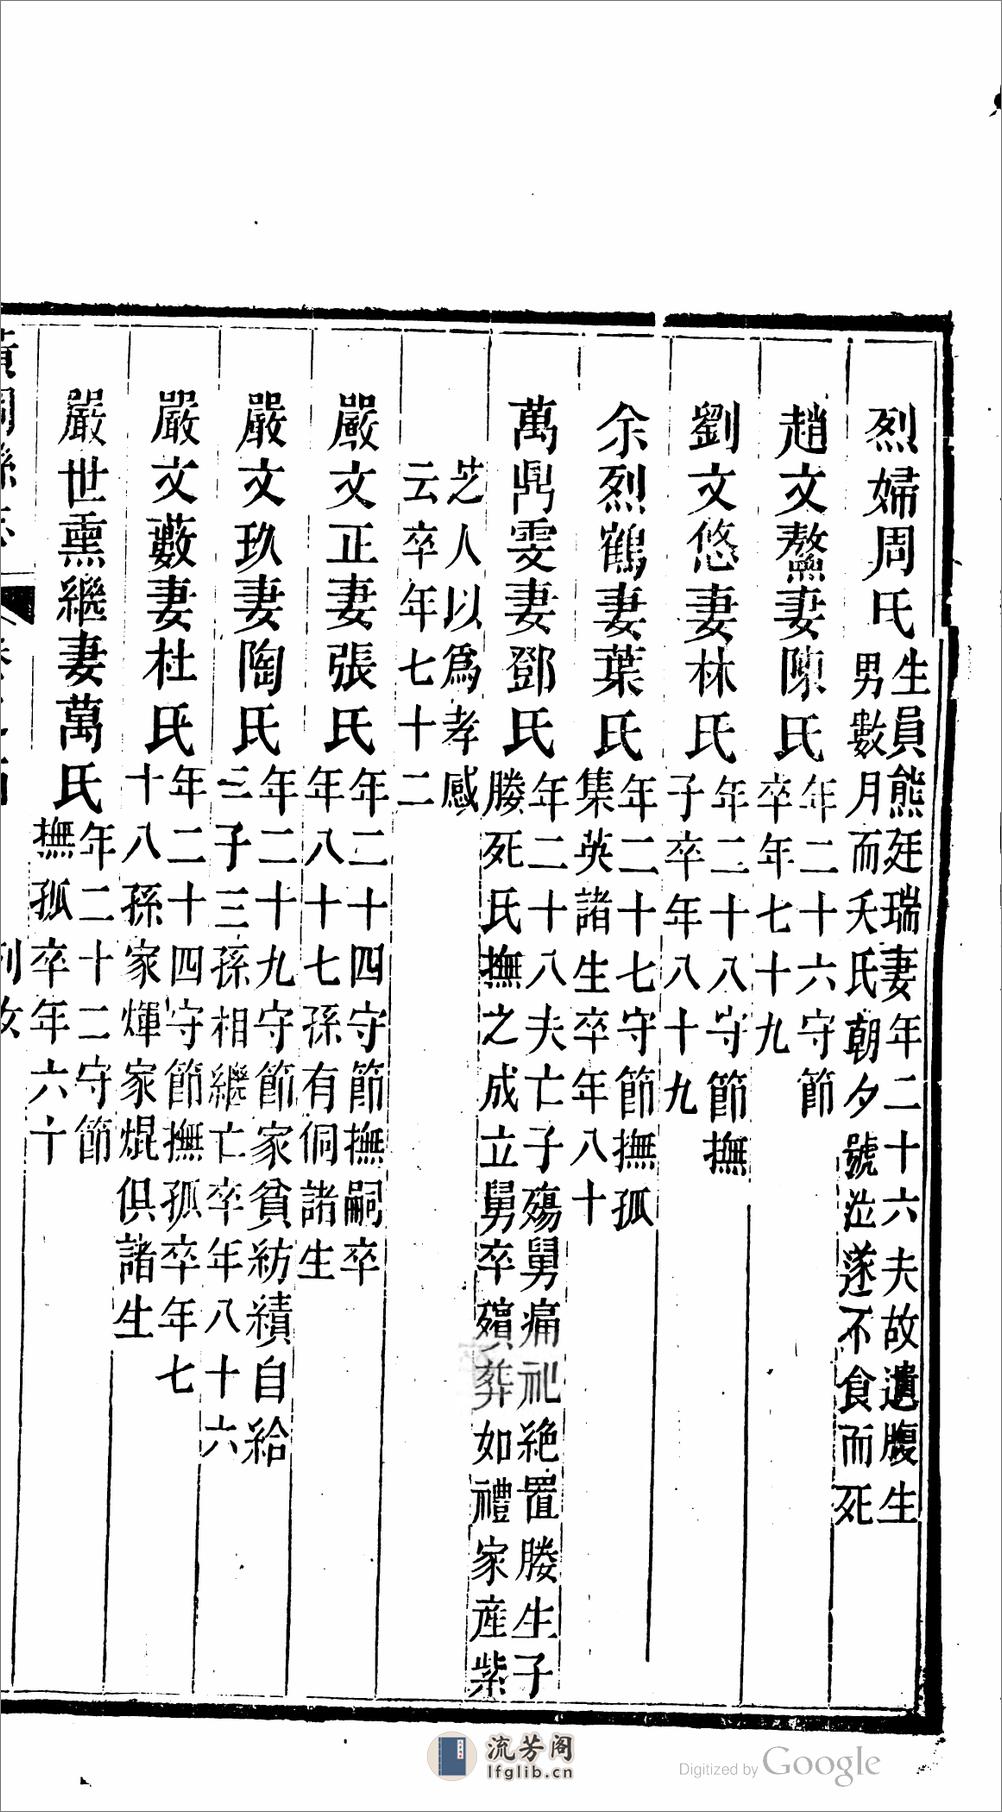 烈婦周氏
生員熊廷瑞妻年二十六夫故遺腹生
男數月而夭氏朝夕號泣遂不食而死
趙文鰲妻陳氏
年二十六守節
卒年七十九
劉文悠妻林氏
年二十八守節撫
子卒年八十九
余烈鶴妻葉氏
年二十七守節撫孤
集英諸生卒年八十
萬鼎雯妻鄧氏
年二十八夫亡子殤舅痛祀絶置媵生子
媵死氏撫之成立舅卒殯葬如禮家産紫
芝人以爲孝感
云卒年七十二
嚴文正妻張氏
年二十四守節撫嗣卒
年八十七孫有侗諸生
嚴文玖妻陶氏
年二十九守節家貧紡績自給
三子三孫相繼亡卒年八十六
嚴文藪妻杜氏
年二十四守節撫孤卒年七
十八孫家煇家焜俱諸生
嚴世熏繼妻萬氏
年二十二守節
撫孤卒年六十
流芳阁
lfglib.cn
Digitized by Google